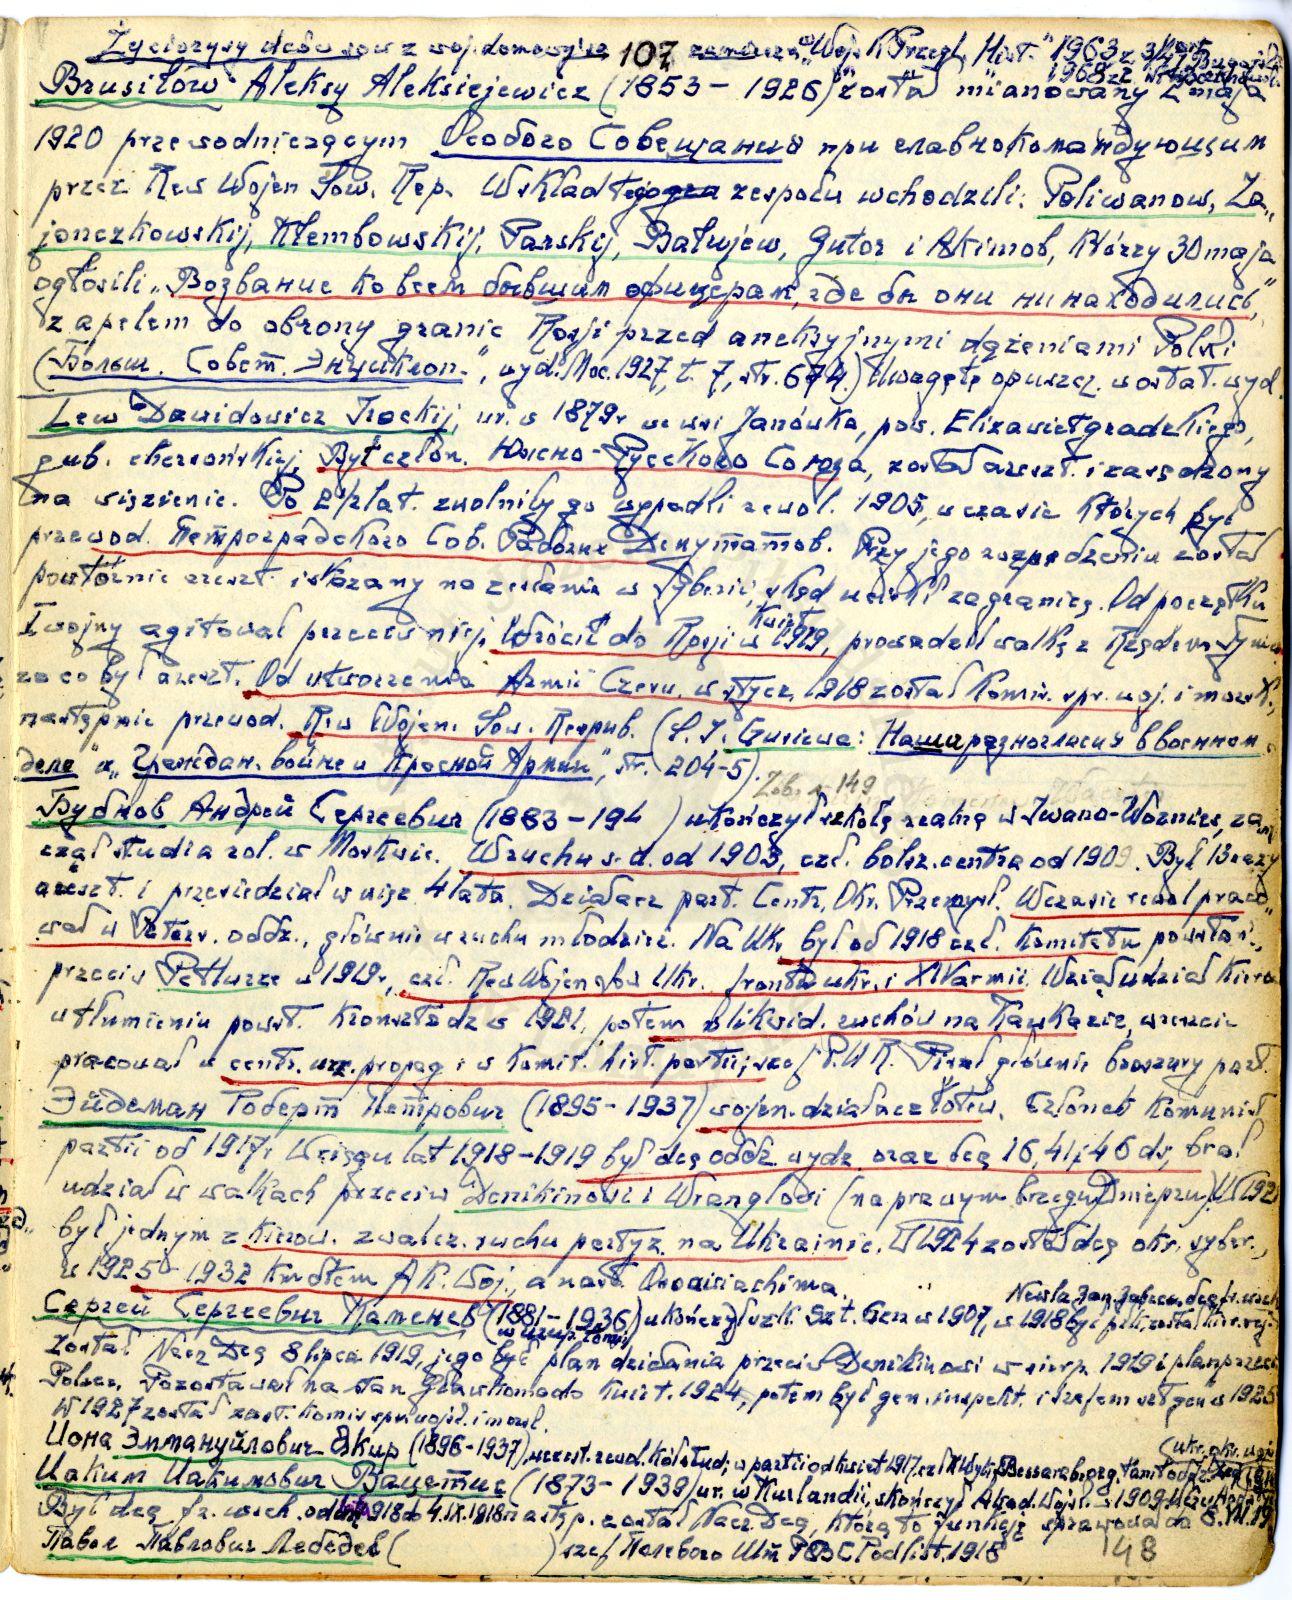 Życiorysy dców sow. z woj. domowej 107 zamieszcz. "Wojs. Przegl. Hist." 1963 z. 3/
1968 z.
Brusiłów Aleksy Aleksiejewicz (1853 – 1926) został mianowany 2 maja
1920 przewodniczącym Особого Совещания при главнокомандующим
przez Rew Wojen Sow. Rep. W skład tego zespołu wchodzili: Poliwanow, Za„
jonczkowskij, Kłembowskij, Parskij, Bałujew, Gutor i Akimow, którzy 30 maja
ogłosili „Воззвание ко всем бывшим офицерам, где бы они ни находились„
z apelem do obrony granic Rosji przed aneksyjnymi dążeniami Polski
(„Больш. Совет. Энциклоп.", wyd. Moc. 1927, t. 7, str. 674.) Uwagę tę opuszcz. w ostat. wyd.
Lew Dawidowicz Trockij, ur. w 1879r we wsi Janówka, pow. Elizawietgradzkiego,
gub. chersońskiej. Był człon. Южно-Русского Союза, został areszt. i zasądzony
na więzienie. Po 2 1/2 lat. zwolniły go wypadki rewol. 1905, w czasie których był
przewod. Петроградского Сов. Рабочих Депутатов. Przy jego rozpędzeniu został
powtórnie areszt. i skazany na zesłanie w Syberii, skąd uciekł zagranicę. Od początku
I wojny agitował przeciw niej. Wrócił do Rosji w kwiet. 1919, prowadził walkę z Rządem Tym.
za co był areszt. Od utworzenia Armii Czerw. w stycz. 1918 został Komis. spr. woj. i morsk.,
następnie przewod. Rew Wojen. Sow. Respub. (S. I. Gusiewa: Наши разногласия в военном
деле" и „Граждан. война и Красной Армии", str. 204-5). Zob. s. 149
Бубнов Андрей Сергеевич (1883 – 194 ) ukończył szkołę realną w Iwano-Woznies, za„
czął studia rol. w Moskwie. W ruchu s-d. od 1903, czł. bolsz. centra od 1909. Był 13 razy
areszt. i przesiedział w więz. 4 lata. Działacz part. Centr. Okr. Przemysł. W czasie rewol praco„
wał w Petersr. oddz., głównie w ruchu młodzież. Na Ukr. był od 1918 czł. Komitetu powstań.,
przeciw Petlurze w 1919r., czł. Rew Wojen Sow Ukr. frontu ukr. i XIV armii. Wziął udział kier.
w tłumieniu powst. Kronsztadz w 1921, potem w likwid. ruchów na Kaukazie, wreszcie
pracował w centr. urz. propag. i w Komit. hist. partii, szef P.U.R. Pisał głównie broszury part.
Эйдеман Роберт Петрович (1895-1937) wojen. działacz łotew. Członek Komunist
partii od 1917r. W ciągu lat 1918-1919 był dcą oddz wydz. oraz dcą 16, 41 i 46 ds, brał
udział w walkach przeciw Denikinowi i Wranglowi (na prawym brzegu Dniepru). W 1921
był jednym z kierow. zwalcz. ruchu partyz. na Ukrainie. W 1924 został dcą okr. syber.,
w 1925-1932 kmdtem AK. Woj., a nast. Osoawiachima.
Сергей Сергеевич Каменев (1881-1936) ukończył szk. Szt. Gen w 1907, w 1918 był
został Nacz Dcą 8 lipca 1919, jego był plan działania przeciw Denikinowi w sierp. 1919 i plan przeciw
Polsce. Pozostawał na stan. Gławkomado kwiet. 1924, potem był gen. inspekt. i szefem szt gen w 1925
W 1927 został zast. Komis spr. wojsk. i morsk.
Иона Эммануйлович Якир (1896-1937), uczest. rewol. kół stud., w partii od kwiet 1917, czł. Kom. Wyk. Bessarab,
Иаким Иакимович Вацетис (1873-1938) ur. w Kurlandii, skończył Akad. Wojsk. w 1909.
Był dcą fr. wsch. od 1918 do 4.IX.1918 następ. został Nacz Dcą, którą to funkcję sprawował do 8.VII.19
Павел Павлович Лебедев ( ) szef Полевого Шт РВСР od list. 1918
148